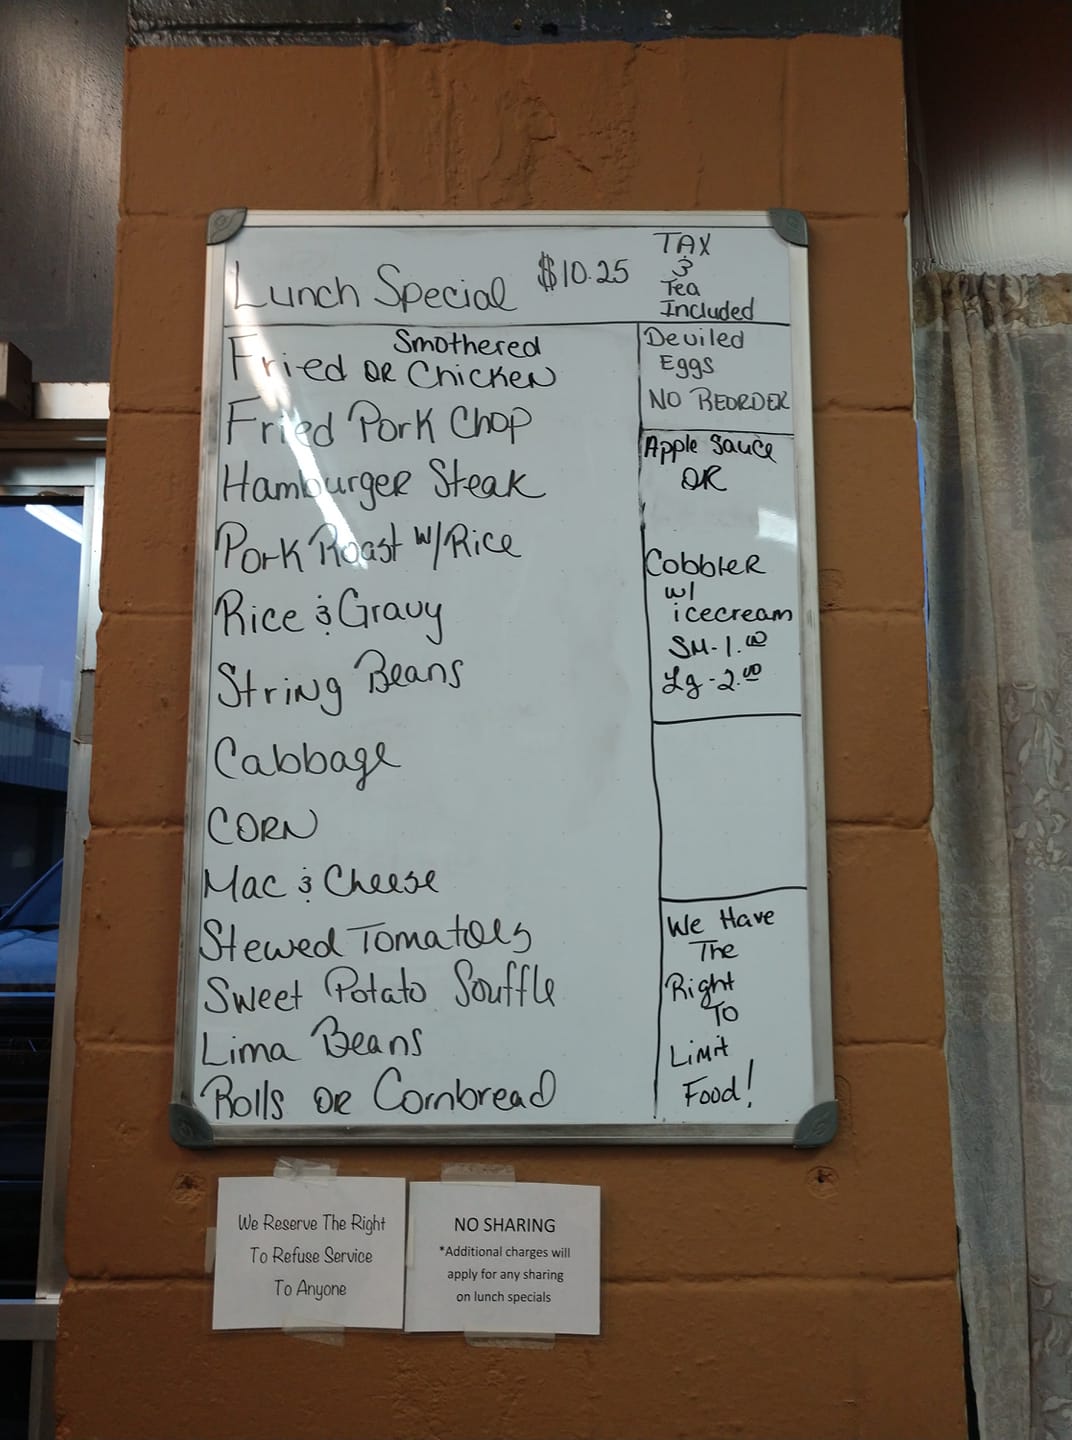 Lunch Special $10.25
TAX
&
Tea
Included
Smothered
Fried OR Chicken
Fried Pork Chop
Hamburger Steak
Pork Roast w/Rice
Rice & Gravy
String Beans
Cabbage
CORN
Mac & Cheese
Stewed Tomatoes
Sweet Potato Souffle
Lima Beans
Rolls OR Cornbread
Deviled
Eggs
NO REORDER
Apple Sauce
OR
Cobbler
w/
icecream
SM-1.00
Lg-2.00
We Have
The
Right
To
Limit
Food!
We Reserve The Right
To Refuse Service
To Anyone
NO SHARING
*Additional charges will
apply for any sharing
on lunch specials